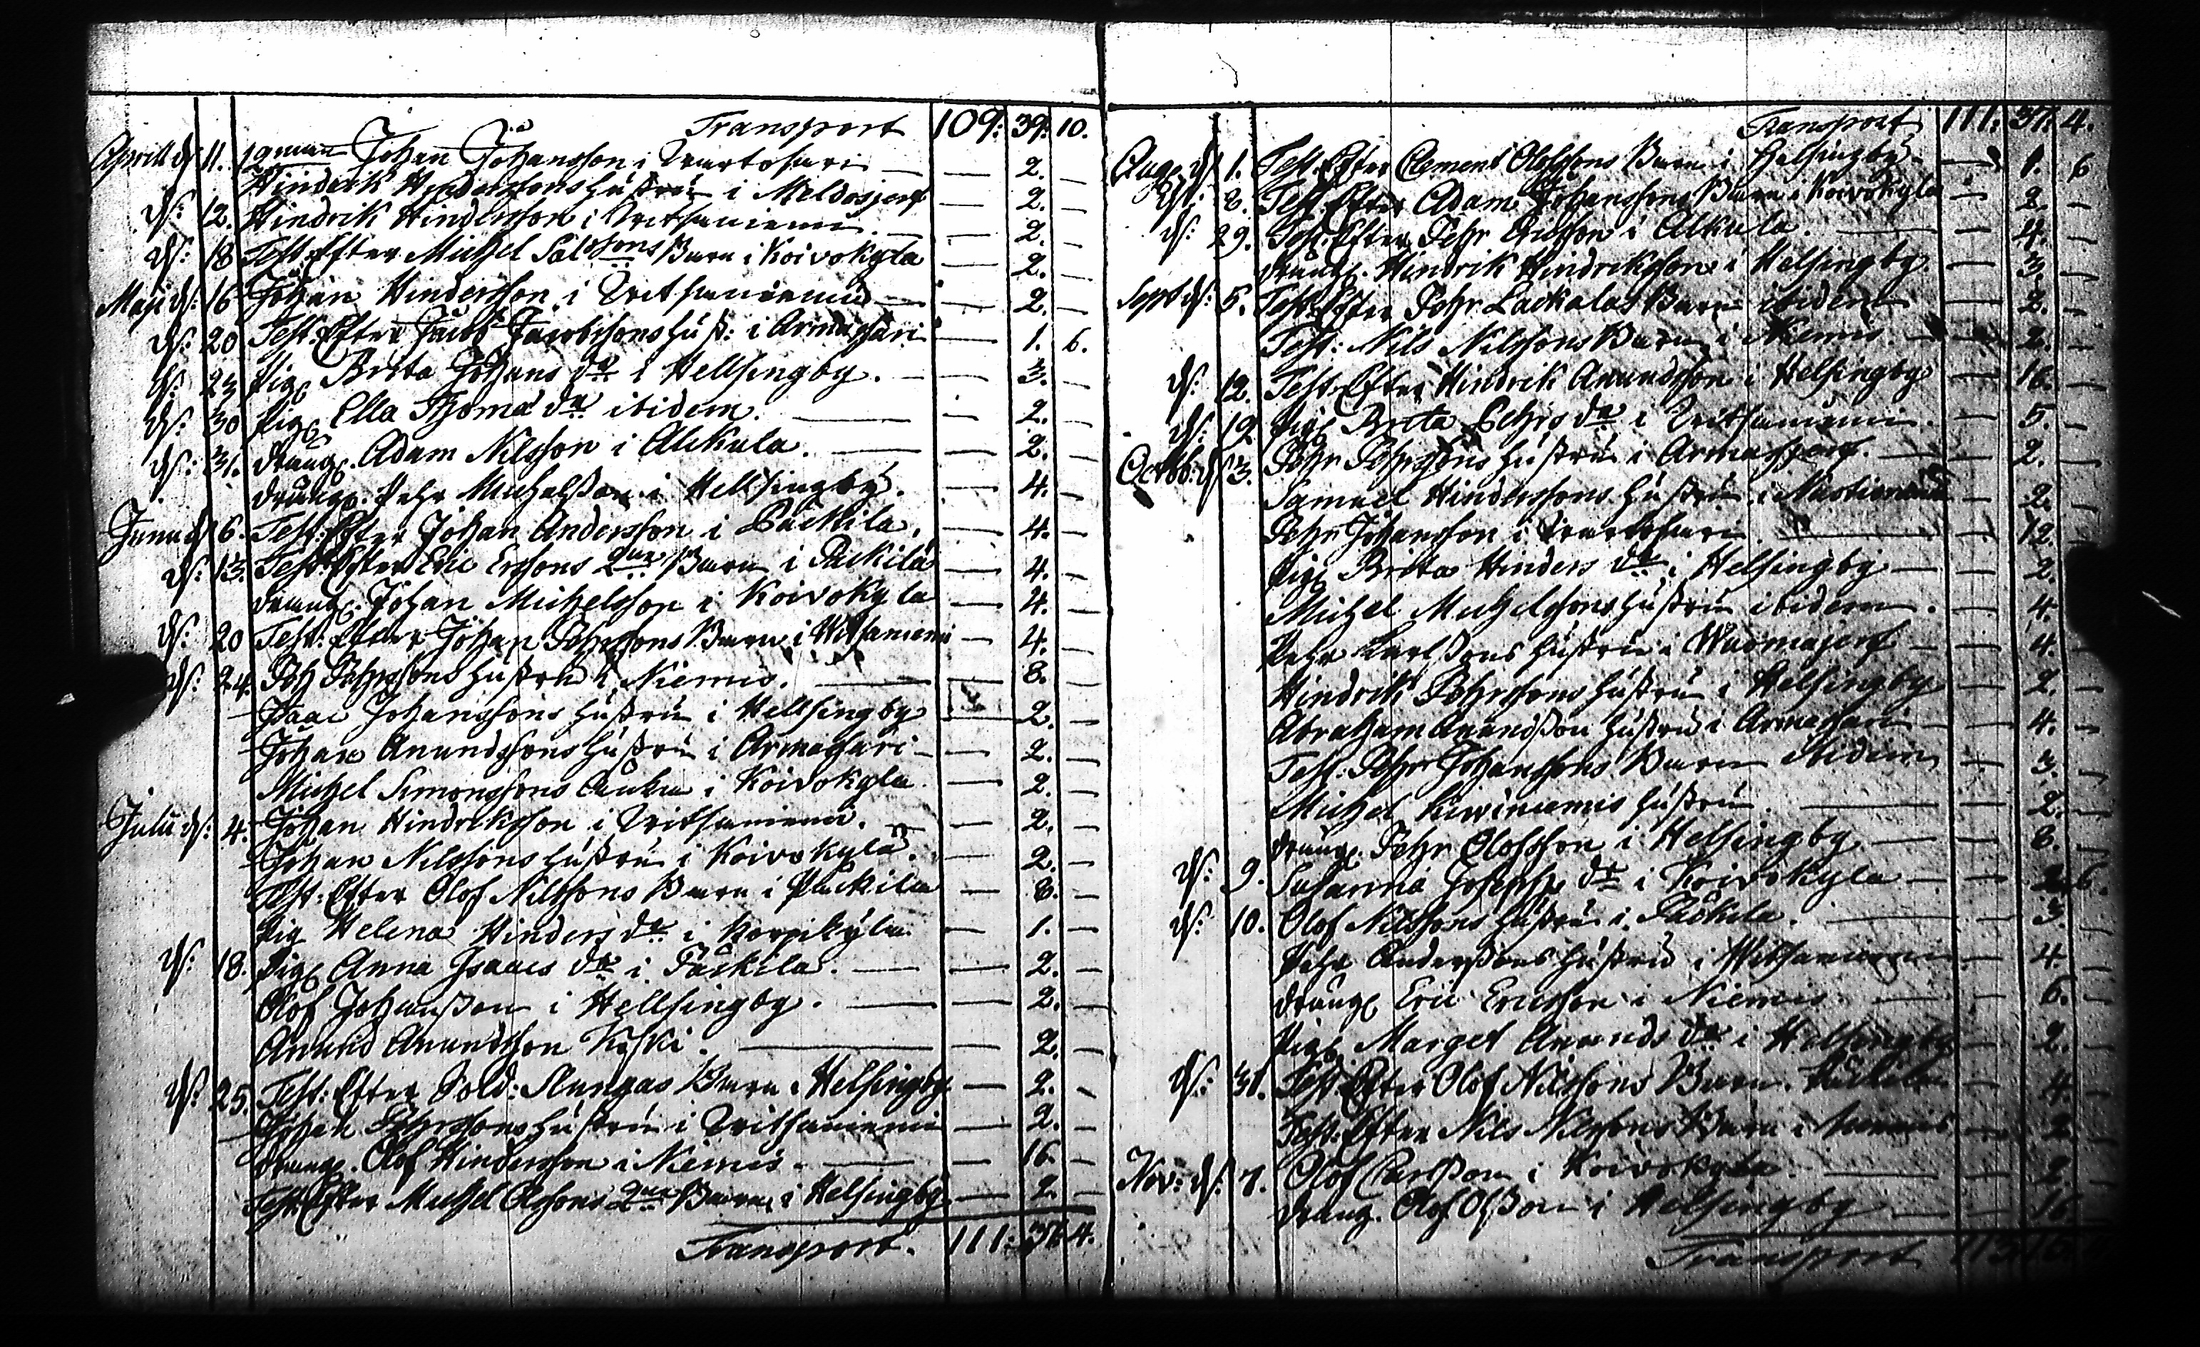 Transport 109: 39: 10.
Aprill d/ 11. Johan Johansson i — 2. —
Hindrik Hinderssons hustru i Meldosjerf — 2. —
d/: 12. Hindrik Hindersson i Vitsaniemi — 2. —
d/: 18 Test: Efter Michel Barn i Koivokyla — 2. —
Maji d/: 16 Johan Hindersson i Vitsaniemi — 2. —
d/: 20 Test: Efter Jacob Jacobssons hust: i Armasari — 1. 6.
d/: 23 Pig. Brita Johans dr i Hellsingby. — 3. —
d/: 30 Pig. Ella Thoma dr ibidem. — 2. —
d/: 31. Dräng. Adam Nilsson i Alckula. — 2. —
Dräng. Pehr Michelsson i Hellsingby. — 4. —
Junii d/ 6. Test: Efter Johan Andersson i Päckila. — 4. —
d/: 13. Test: Efter Eric Erssons Barn i Päckila — 4. —
Dräng. Johan Michelsson i Koivokyla — 4. —
d/: 20 Test: Efter Johan Pehrssons Barn i Witsaniemi — 4. —
d/: 24. Peh Pehrssons hustru i Niemis. — 8. —
Isaac Johanssons hustru i Hellsingby — 2. —
Johan Anundssons hustru i Armasari — 2. —
Michel Simonssons Änka i Koivokyla — 2. —
Julii d/: 4. Johan Hindriksson i Vitsaniemi. — 2. —
Johan Nilssons hustru i Koivokyla. — 2. —
Test: Efter Olof Nilssons Barn i Päckila — 8. —
Pig Helena Hinders dr i Korpikyla — 1. —
d/: 18. Pig. Anna Isaacs dr i Päckila. — 2. —
Olof Johansson i Hellsingby. — 2. —
Anund Anundsson Koski. — 2. —
d/: 25. Test: Efter Sold: Barn i Helsingby — 2. —
Johan Pehrssons hustru i Vitsaniemi — 2. —
Dräng. Olof Hindersson i Niemis. — 16. —
Test: Efter Michel Olssons Barn i Helsingby — 2. —
Transport. 111: 37. 4.
Transport 111: 37. 4.
Aug. d/ 1. Test: Efter Clement Olofssons Barn i Helsingby — 1. 6
d/: 8. Test: Efter Adam Johanssons Barn i Koivokyla — 2. —
d/: 29. Test: Efter Pehr i Alkula. — 4. —
Dräng. Hindrik Hindriksson i Helsingby. — 3. —
Sept d/: 5. Test: Efter Pehr Lackalas Barn ibidem — 2. —
Test: Nils Nilssons Barn i Niemis. — 2. —
d/: 12. Test: Efter Hindrik Anundsson i Helsingby — 16. —
d/: 19 Pig. Brita Pehrs dr i Vitsaniemi. — 5. —
Octob: d/ 3. Pehr Pehrssons hustru i Armasjerf. — 2. —
Samuel Hinderssons hustru i — 2. —
Pehr Johansson i — 12. —
Pig. Brita Hinders dr i Helsingby — 2. —
Michel Michelssons hustru ibidem. — 4. —
Pehr Carlssons hustru i Wuomajerf — 4. —
Hindrik Pehrssons hustru i Helsingby — 2. —
Abraham Anundsson hustru i Armasari — 4. —
Test: Pehr Johanssons Barn ibidem — 3. —
Michel hustru. — 2. —
Dräng. Pehr Olofsson i Helsingby — 8. —
d/: 9. Susanna Josephs dr i Koivokyla — 2. 6.
d/: 10. Olof Nilssons hustru i Päckila. — 3. —
Pehr Anderssons hustru i Witsaniemi — 4. —
Dräng. Eric Ericsson i Niemis — 6. —
Pig. Marget Anunds dr i Helsingby — 2. —
d/: 31. Test: Efter Olof Nilssons Barn Päckila — 4. —
Test: Efter Nils Nilssons Barn i Niemis — 2. —
Nov: d/: 7. Olof Carlsson i Koivokyla — 2. —
Dräng. Olof Olsson i Helsingby — 16. —
Transport